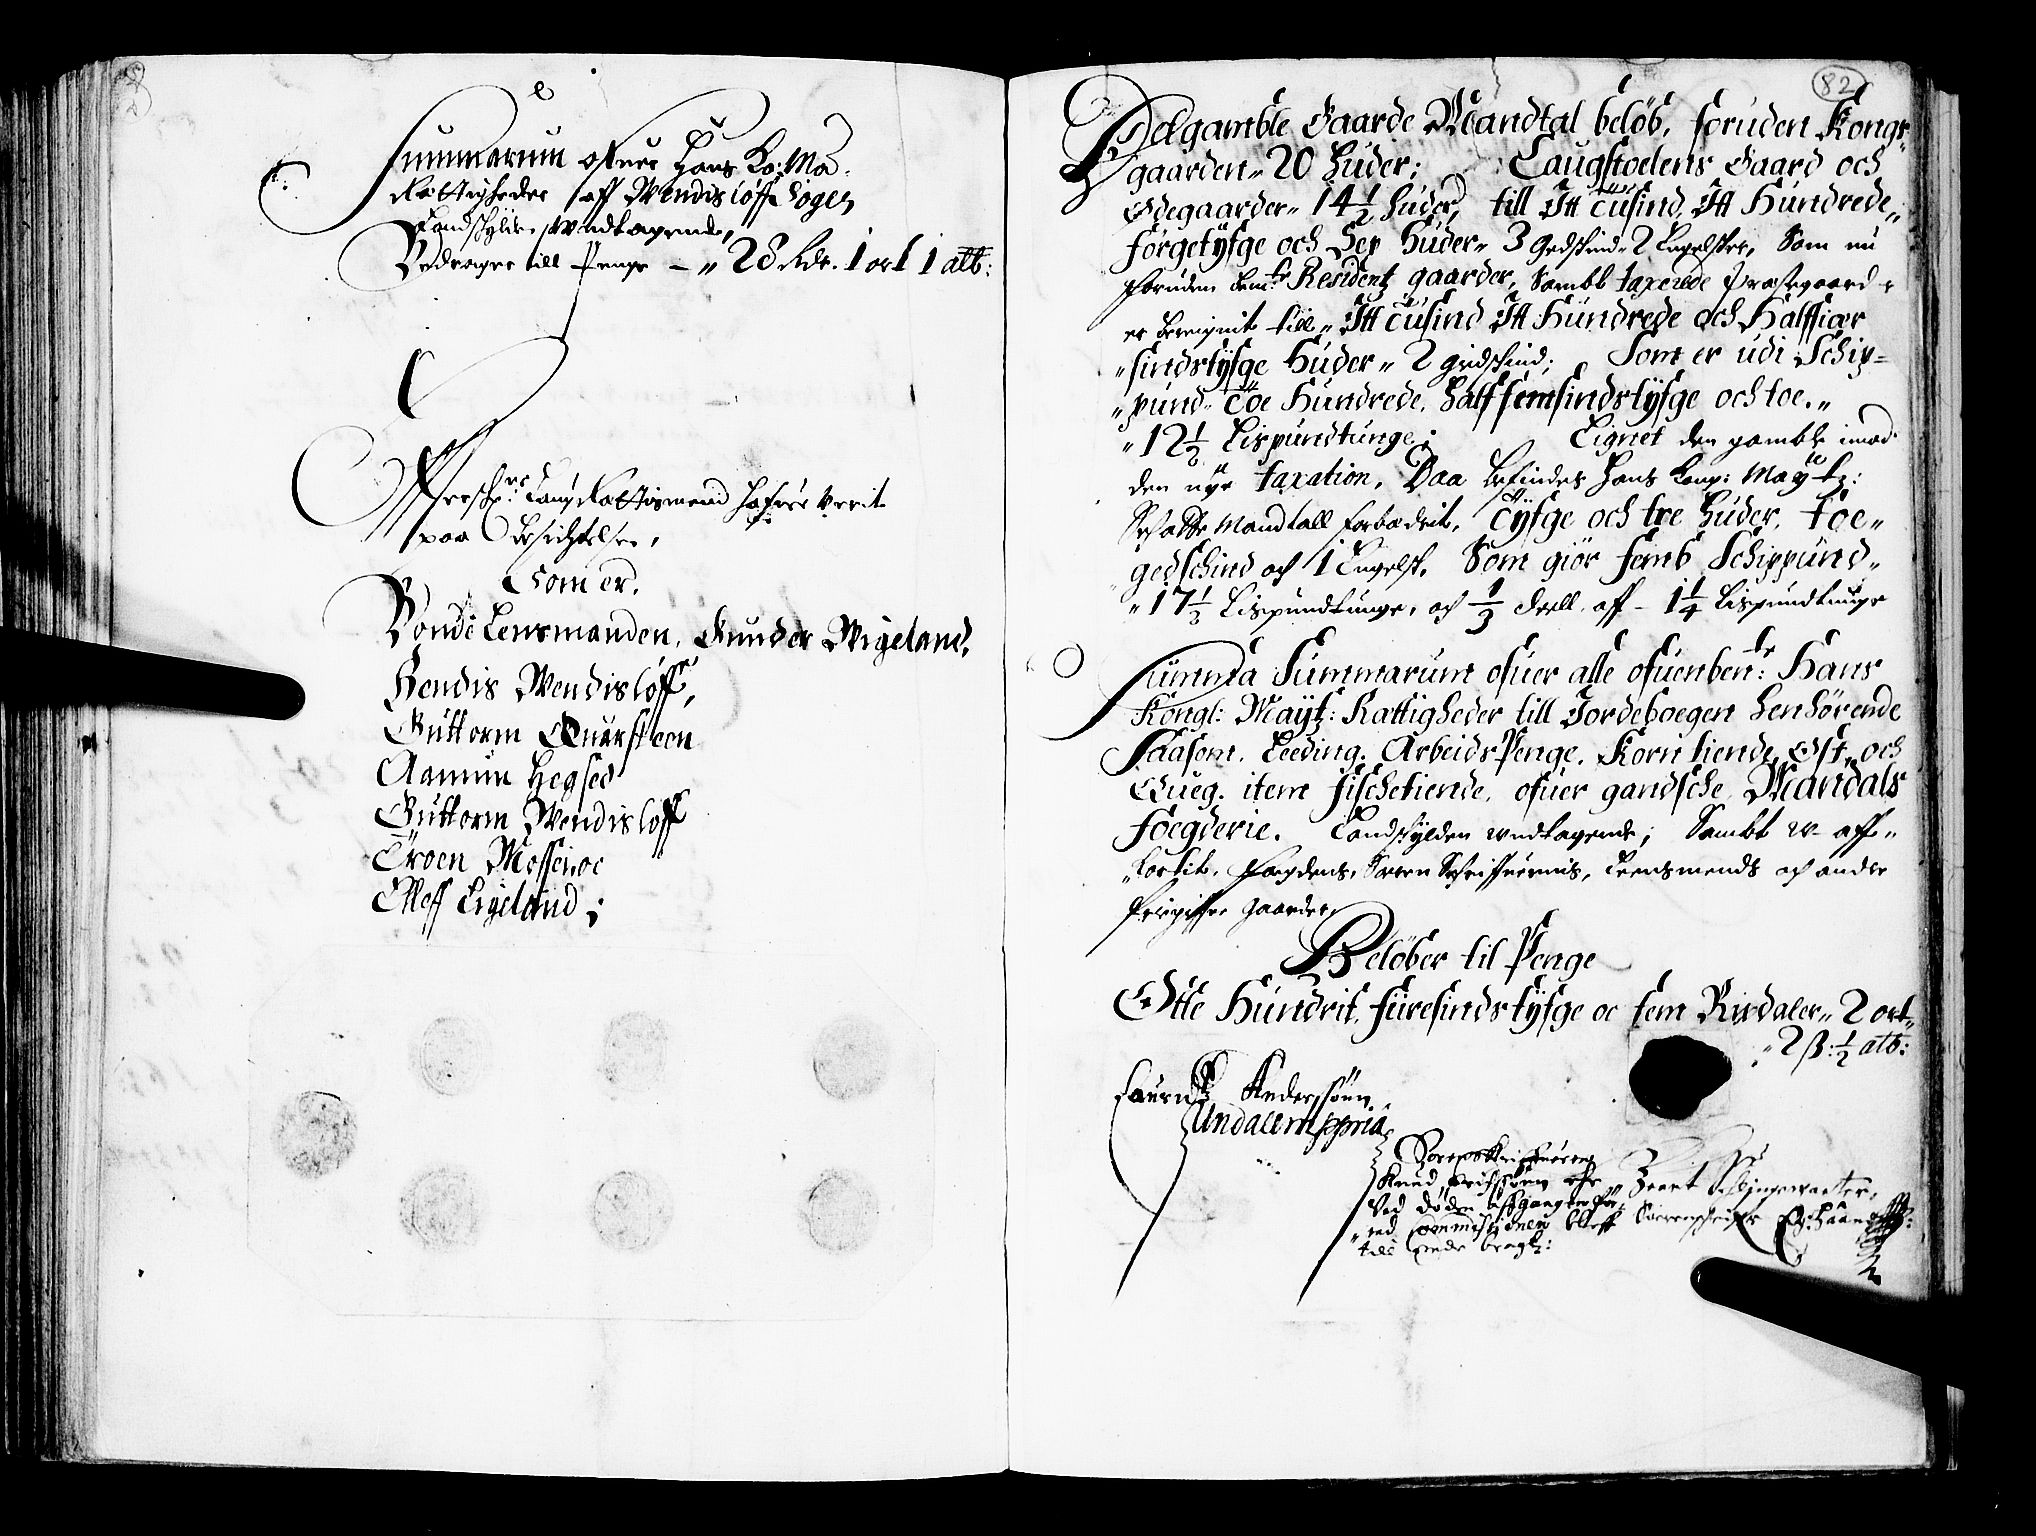 Summarum ofuer Hans Ko: Ma.
Rettigheder aff Wendisløff Sogen
Landschylde undtagende,
Bedrager till Penge — „ 28 Rdr. 1 ort 1 alb:
Efftersch: Laug Rettismend hafuer verit
paa Besichtelsen,
Som er.
Bonde Lensmanden, Gunder Wigeland,
Hendis Wendisløff,
Guttorm Quarsteen
Aamun Hegsed
Guttorm Wendisløff
Troen Mosseroe
Elleff Ligeland;
82
Det gamble Gaarde Mandtal beløb, foruden Kongs-
gaarden „ 20 Huder; Laugstoelens Gaard och
Ødegaarder „ 14 1/2 Huder, till Itt tusind, Itt Hundrede,,
førgetyfge och Sex Huder „ 3 gedschind „ 2 Engelscher, Som nu
foruden bem:te Residentz gaarder, Sambt taxerede Præstegaard -
er beregnit till „ Itt tusind Itt Hundrede och Halffier
„sindstyfge Huder „ 2 gedschind; Som er udi Schip=
„pund „ toe Hundrede, Halffemsindstyfge och toe. „
„ 12 1/2 Lispundtunge; Lignet den gamble imod
den nye taxation, Daa befindes Hans Kong: Maytz:
Schatte Mandtall forbedrit, tyfge och tre Huder, toe „
gedschind och 1 Engelsk, Som giør femb Schippund „
„ 17 1/2 Lispundtunge, och 1/3 deell aff — 1 1/4 Lispundtunge
Summa Summarum ofuer alle ofuenben:te Hans
Kongl: Maytz: Rettigheder till Jordeboegen henhørende
Saasom, Leeding, Arbeids Penge, Korntiende, Ost, och
Queg, item fischetiende, ofuer gandsche Mandals
foegderie, Landschylden undtagende; Sambt v-aff-
„kortit, foegdens, Soren Schrifuerens, Lensmends och andre
friegifne gaarder,
Beløber til Penge
Otte Hundrit, fiiresindstyfge oc fem Rixdaler „ 2 ort „
„ 2 ß: 1/2 alb:
Lauritz Anderssønn
Undalem ppria
Sorenschrifueren
Knud
ved døden affgangen før-
end Commissionen bleff
till ende bragt:
Sorenschrifuer